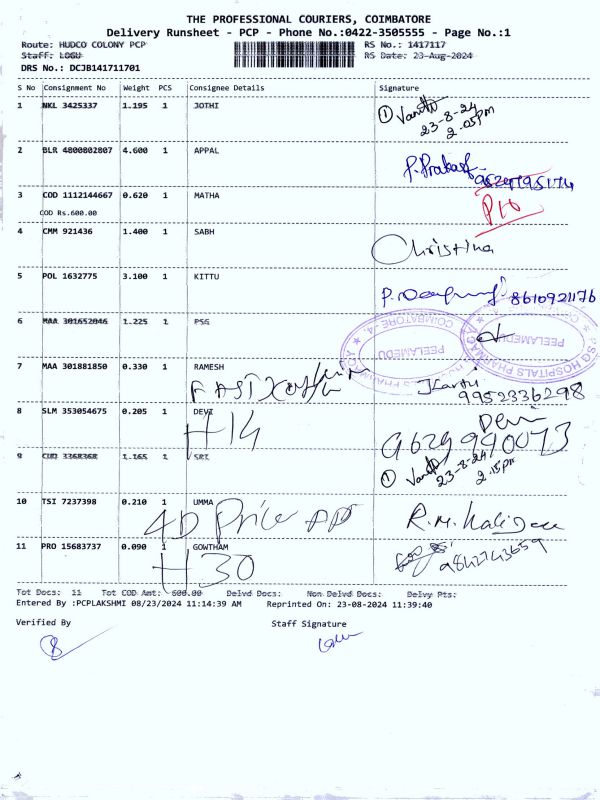 THE PROFESSIONAL COURIERS, COIMBATORE
Delivery Runsheet - PCP - Phone No.:0422-3505555 - Page No.:1
Route: HUDCO COLONY PCP RS No.: 1417117
Staff: LOGU RS Date: 23-Aug-2024
DRS No.: DCJB141711701
S No Consignment No Weight PCS Consignee Details Signature
1 NKL 3425337 1.195 1 JOTHI
1 23-8-24
2.05pm
2 BLR 4800802807 4.600 1 APPAL
P. Prakash
3 COD 1112144667 0.620 1 MATHA
COD Rs.600.00
4 CMM 921436 1.400 1 SABH Christina
5 POL 1632775 3.100 1 KITTU
8610921176
6 MAA 301652046 1.225 1 PSG
COIMBATORE-4
PEELAMEDU
PSG HOSPITALS PHARMACY
PEELAMEDU
7 MAA 301881850 0.330 1 RAMESH
9952336298
8 SLM 353054675 0.205 1 DEVI Devi
H14 9629990073
9 CUD 3368368 1.165 1 SRI
1 23-8-24
2.15pm
10 TSI 7237398 0.210 1 UMMA
4D Price
11 PRO 15683737 0.090 1 GOWTHAM
H30 9842743659
Tot Docs: 11 Tot COD Amt: 600.00 Delvd Docs: Non Delvd Docs: Delvy Pts:
Entered By :PCPLAKSHMI 08/23/2024 11:14:39 AM Reprinted On: 23-08-2024 11:39:40
Verified By Staff Signature